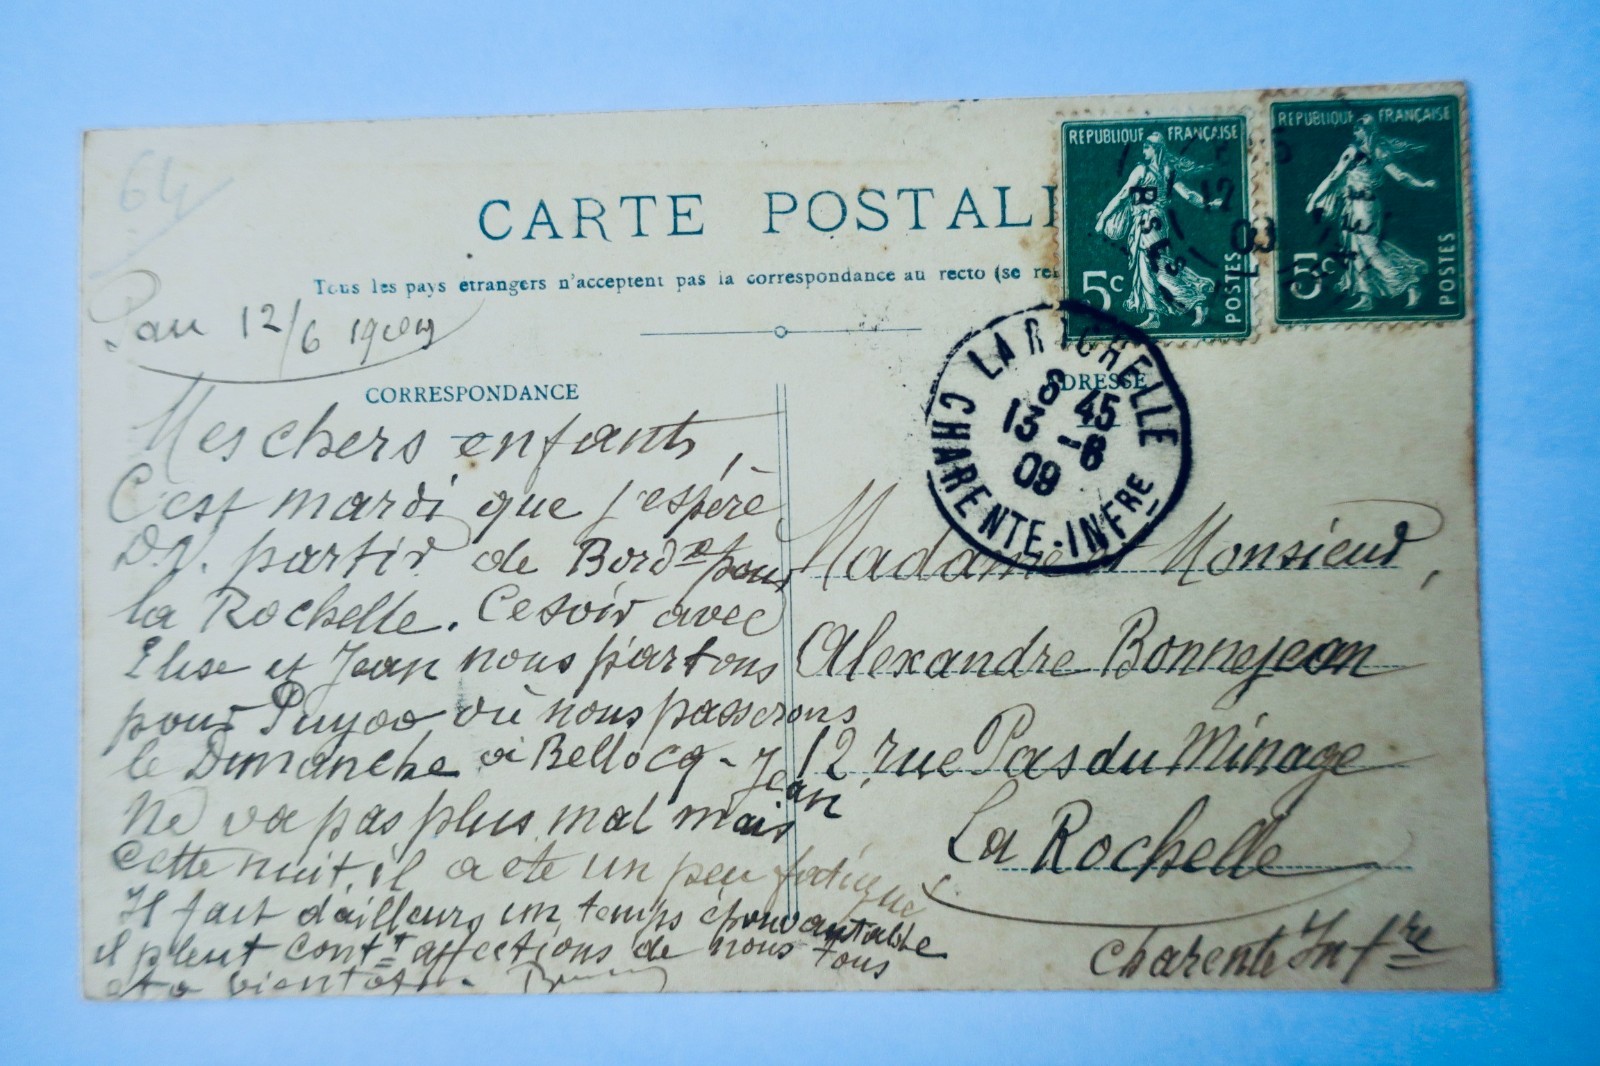 64
CARTE POSTAL
Tous les pays étrangers n'acceptent pas la correspondance au recto (se re
Pau 12/6 1909
CORRESPONDANCE
Mes chers enfants,
C'est mardi que j'espère
D.V. partir de Bordx pour
la Rochelle. Ce soir avec
Elise et Jean nous partons
pour Puyoo où nous passerons
le Dimanche à Bellocq - Jean
ne va pas plus mal mais
cette nuit, il a été un peu fatigué
Il fait d'ailleurs un temps épouvantable
il pleut contt affections de nous tous
et a bientôt.
RÉPUBLIQUE FRANÇAISE
5c
POSTES
RÉPUBLIQUE FRANÇAISE
5c
POSTES
LA ROCHELLE
8 45
13 -6
09
CHARENTE-INFRE
ADRESSE
Madame et Monsieur,
Alexandre Bonnejean
12 rue Pas du Minage
La Rochelle
Charente Infre